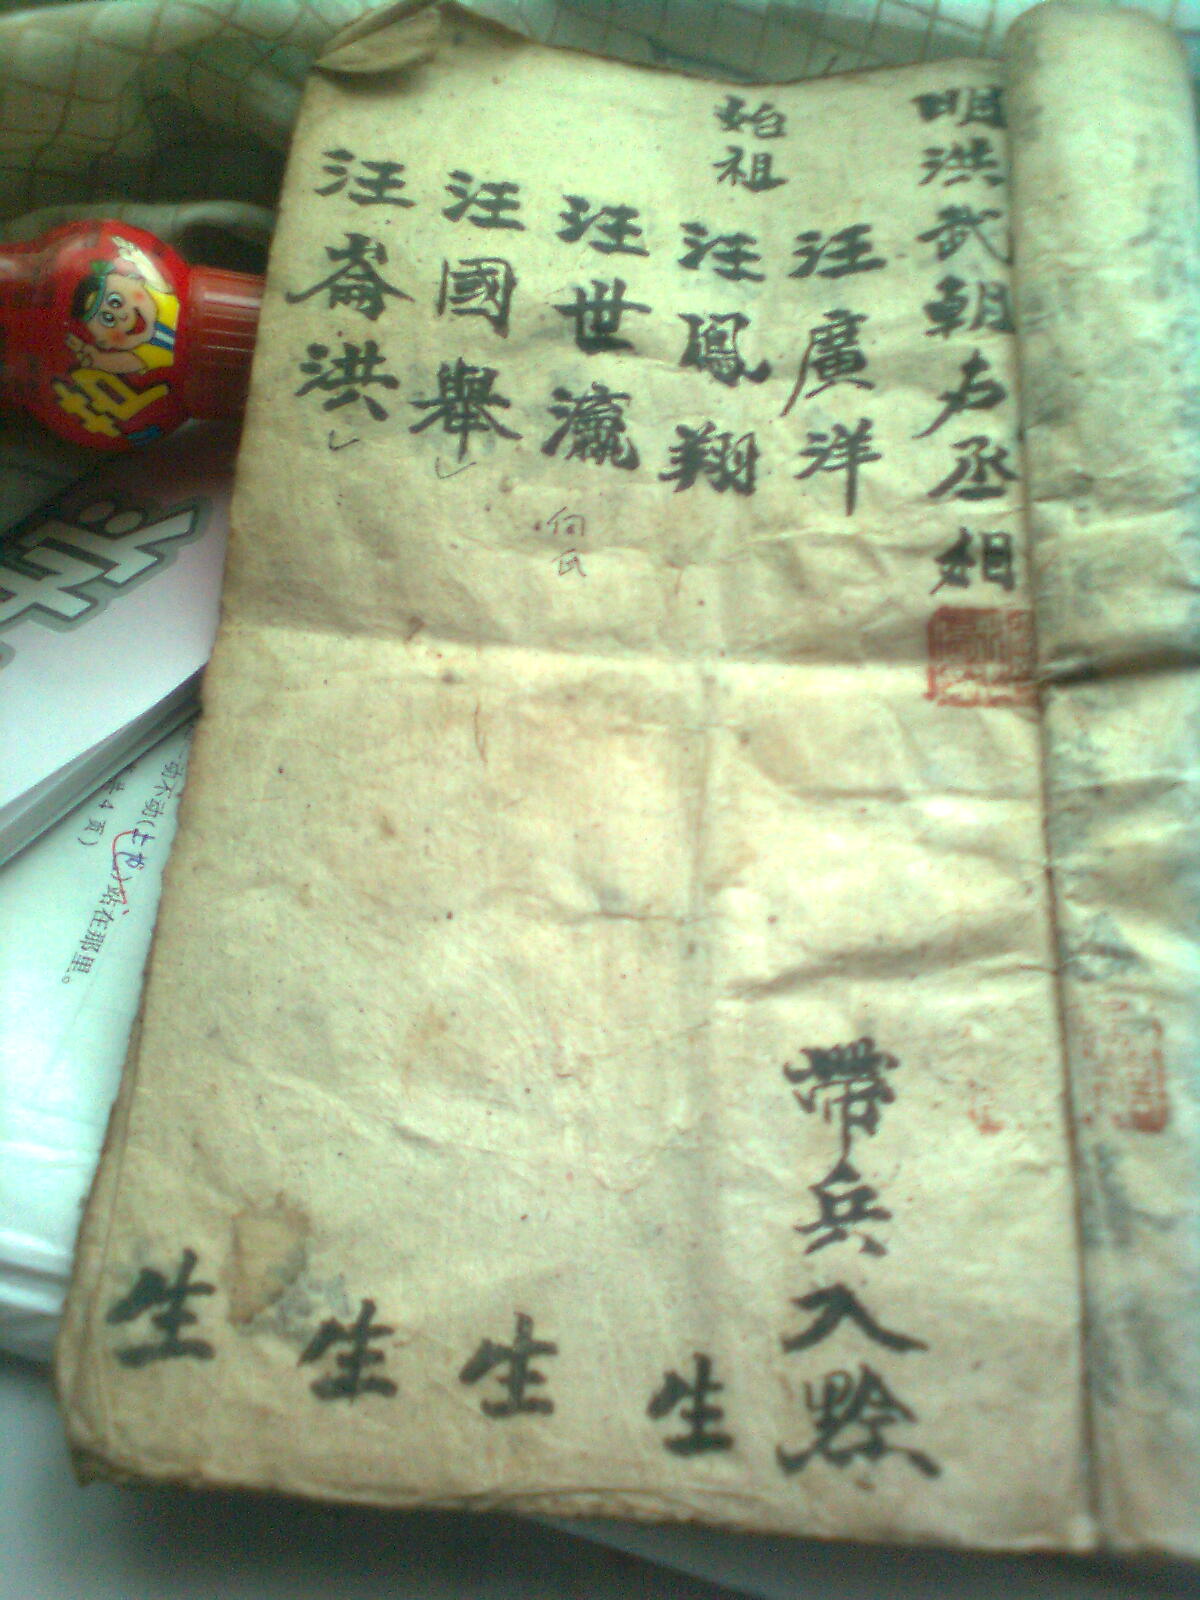 明洪武朝左丞相
始祖
汪廣洋 帶兵入黔
汪鳳翔 生
汪世瀛 生
何氏
汪國舉 生
汪崙洪 生
动不动(上
站在那里。
共4页)